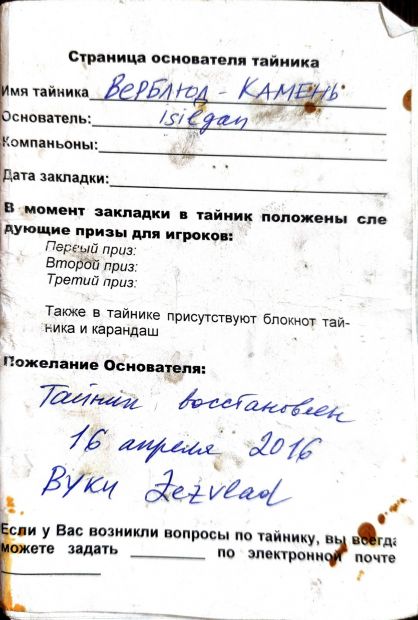 Страница основателя тайника
Имя тайника ВЕРБЛЮД - КАМЕНЬ
Основатель: isilgan
Компаньоны:
Дата закладки:
В момент закладки в тайник положены сле
дующие призы для игроков:
Первый приз:
Второй приз:
Третий приз:
Также в тайнике присутствуют блокнот тай-
ника и карандаш
Пожелание Основателя:
Тайник восстановлен
16 апреля 2016
Вуки Zezvlad
Если у Вас возникли вопросы по тайнику, вы всегда
можете задать по электронной почте